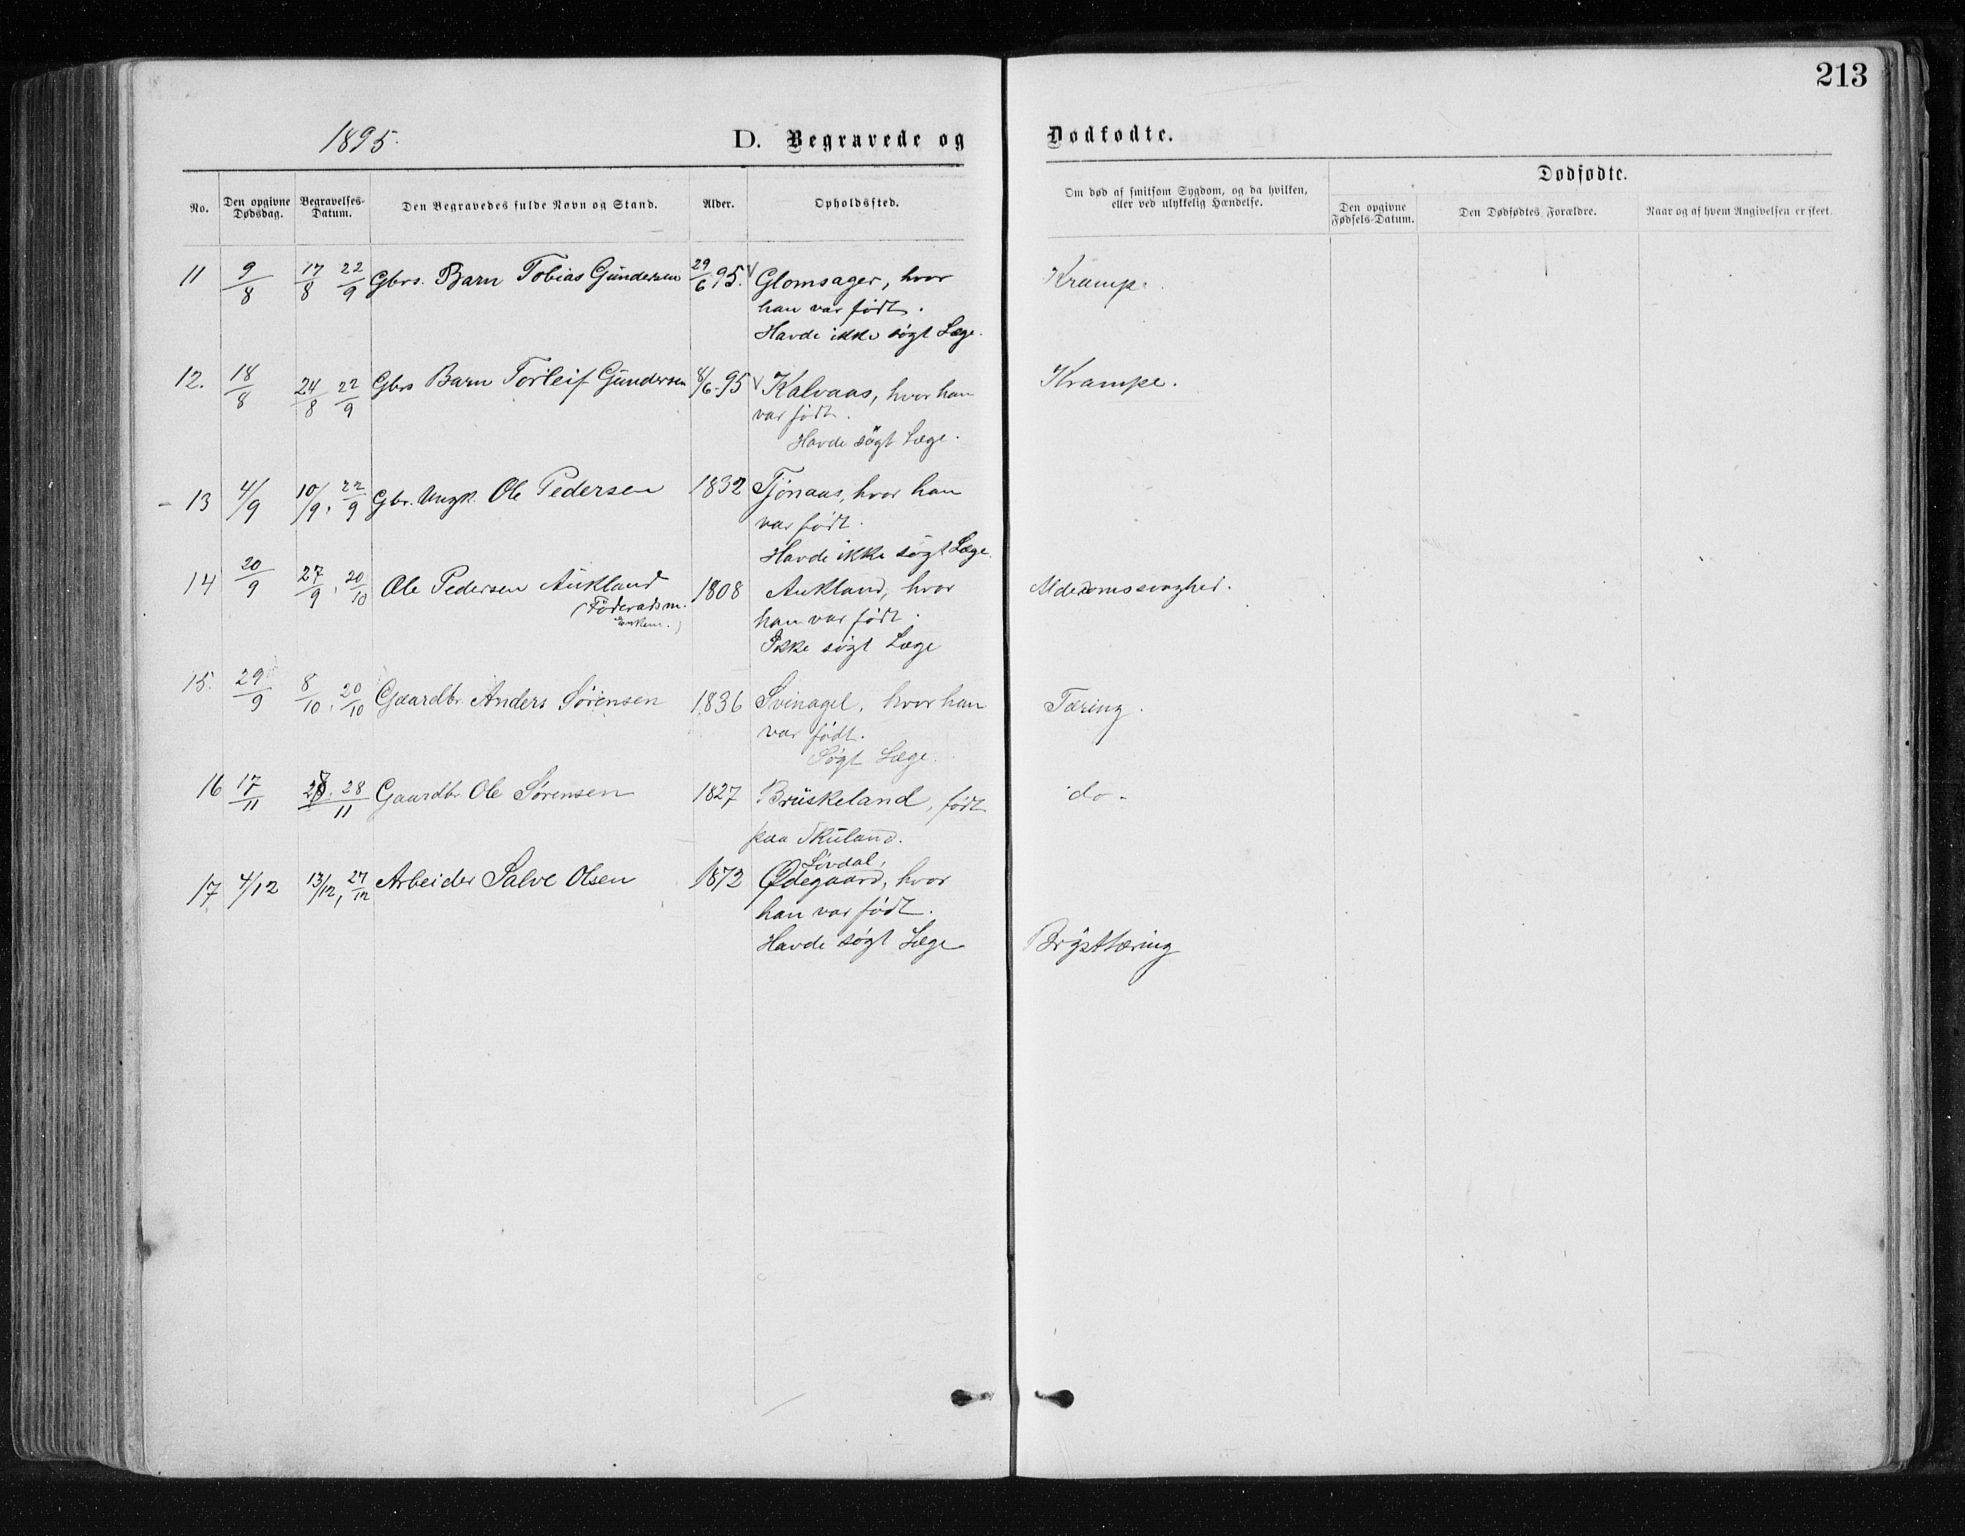 213
1895.
D. Begravede og Dødfødte.
Dødfødte.
No.
Den opgivne Dødsdag.
Begravelses-Datum.
Den Begravedes fulde Navn og Stand.
Alder.
Opholdssted.
Om død af smitsom Sygdom, og da hvilken, eller ved ulykkelig Hændelse.
Den opgivne Fødsels-Datum.
Den Dødfødtes Forældre.
Naar og af hvem Angivelsen er skeet.
11 9/8 17/8 22/9 Gbrs. Barn Tobias Gundersen 29/6 95. Glomsager, hvor Krampe.
han var født.
Havde ikke søgt Læge.
12. 18/8 24/8 22/9 Gbrs Barn Torleif Gundersen 8/6-95 Kalvaas, hvor han Krampe.
var født.
Havde søgt Læge.
13 4/9 10/9, 22/9 Gbr. Ungk. Ole Pedersen 1832 Tjónaas, hvor han
var født.
Havde ikke søgt Læge.
14 20/9 27/9, 20/10 Ole Pedersen Aukland 1808 Aukland, hvor Alderdomssvaghed.
(Føderadsm. han var født.
Enkem.)
Ikke søgt Læge
15. 29/9 8/10. 20/10 Gaardbr. Anders Sørensen 1836 Svinagel, hvor han Tæring.
var født.
Søgt Læge.
16 17/11 28/11 Gaardbr Ole Sørensen 1827 Bruskeland, født do-
paa Skuland.
Løvdal,
17 4/12 13/12, 27/12 Arbeider Salve Olsen 1872 Ødegaard, hvor
han var født.
Havde søgt Læge Brysttæring